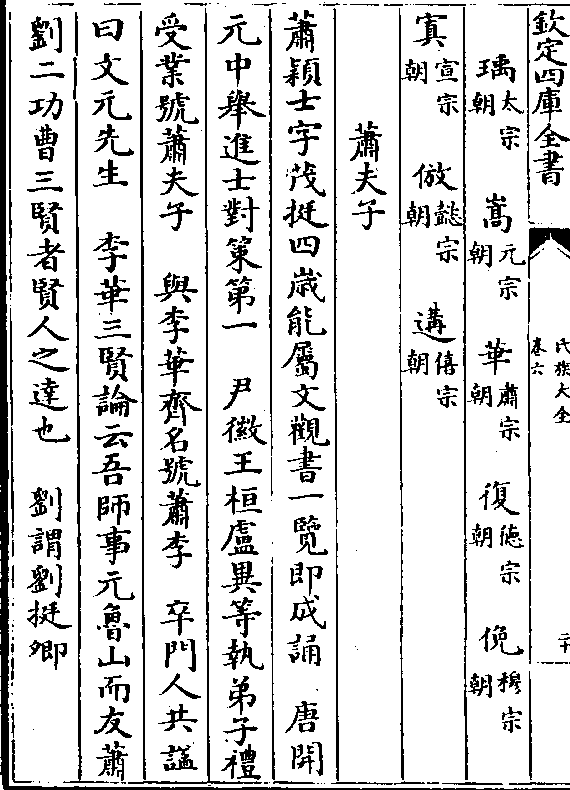 欽定四庫全書
氏族大全
卷六
二十
瑀太宗朝 嵩元宗朝 華肅宗朝 復德宗朝 俛穆宗朝
寘宣宗朝 倣懿宗朝 遘僖宗朝
蕭夫子
蕭穎士字茂挺四歲能屬文觀書一覽即成誦 唐開
元中舉進士對策第一 尹徵王桓盧異等執弟子禮
受業號蕭夫子 與李華齊名號蕭李 卒門人共諡
曰文元先生 李華三賢論云吾師事元魯山而友蕭
劉二功曹三賢者賢人之達也 劉謂劉挺卿